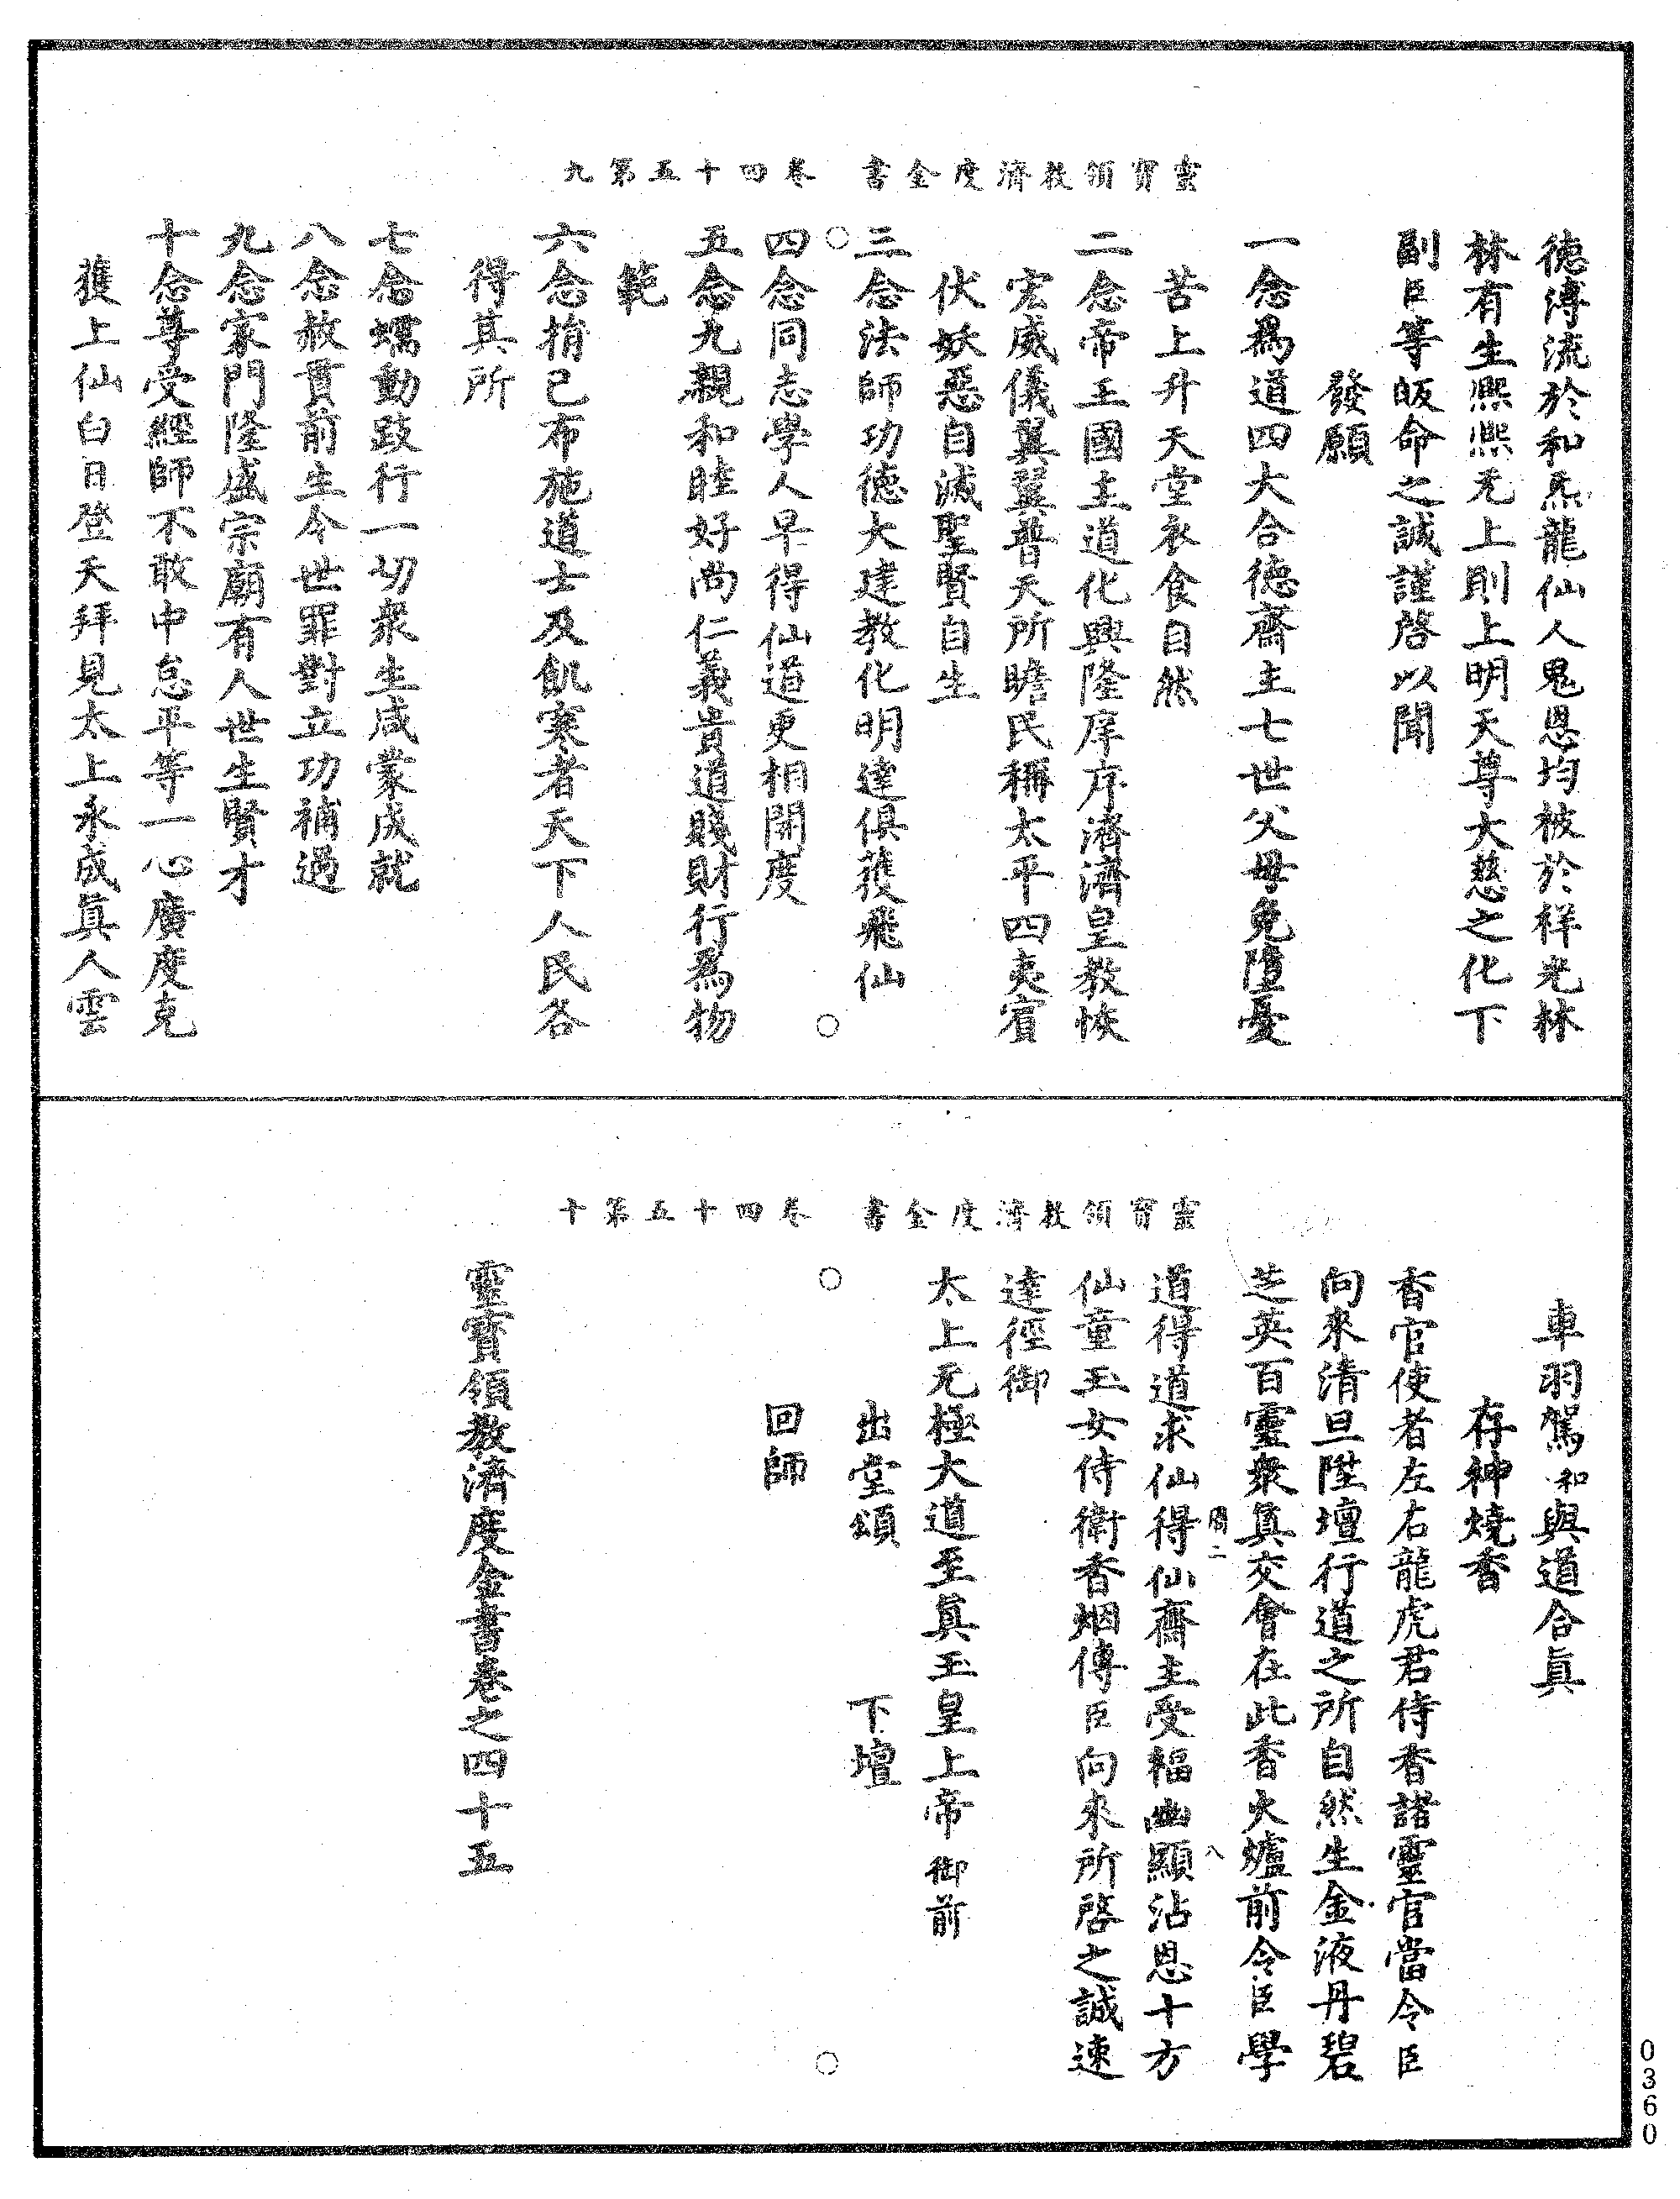 靈寶領教濟度金書　卷四十五第九
德溥流於和炁龍仙人鬼恩均被於祥光林
林有生熙熙无上則上明天尊大慈之化下
副臣等皈命之誠謹啓以聞
發願
一念爲道四大合德齋主七世父母免墮憂
苦上升天堂衣食自然
二念帝王國主道化興隆庠序濟濟皇教恢
宏威儀翼翼普天所瞻民稱太平四夷賓
伏妖惡自滅聖賢自生
三念法師功德大建教化明達俱獲飛仙
四念同志學人早得仙道更相開度
五念九親和睦好尚仁義貴道賤財行爲物
範
六念捐己布施道士及飢寒者天下人民各
得其所
七念蠕動跂行一切衆生咸蒙成就
八念赦貰前生今世罪對立功補過
九念家門隆盛宗廟有人世生賢才
十念尊受經師不敢中怠平等一心廣度克
獲上仙白日登天拜見太上永成眞人雲
靈寶領教濟度金書　卷四十五第十
車羽駕和與道合眞
存神燒香
香官使者左右龍虎君侍香諸靈官當令臣
向來清旦陞壇行道之所自然生金液丹碧
芝英百靈衆眞交會在此香火爐前令臣學
道得道求仙得仙齋主受福幽顯沾恩十方
仙童玉女侍衛香烟傳臣向來所啓之誠速
達徑御
太上无極大道至眞玉皇上帝御前
出堂頌　下壇
回師
靈寶領教濟度金書卷之四十五
二
八
0360